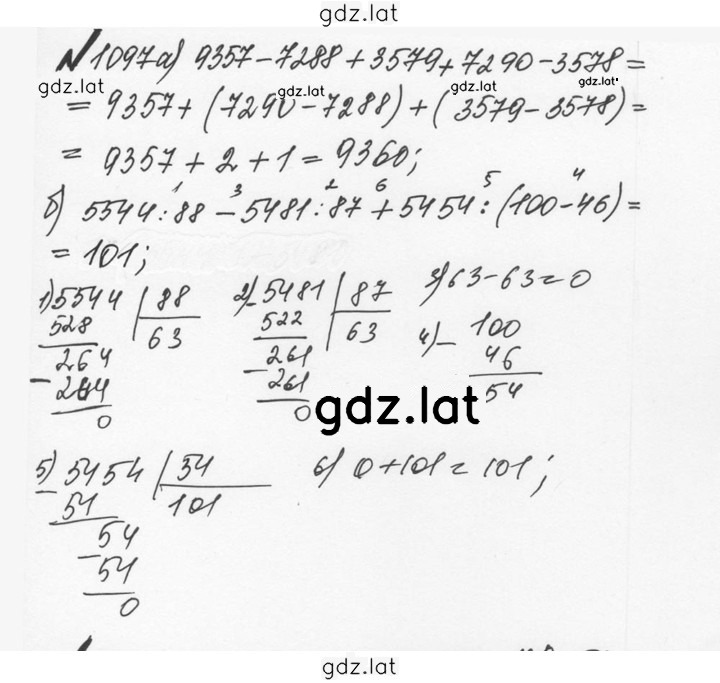 gdz.lat
№1097 а) 9357-7288+3579+7290-3578=
gdz.lat gdz.lat gdz.lat
= 9357+(7290-7288)+(3579-3578)=
= 9357+2+1=9360;
1 3 2 6 5 4
б) 5544:88-5481:87+5454:(100-46)=
= 101;
1) 5544 | 88
528 63
264
- 264
0
2) 5481 | 87
522 63
261
- 261
0
3) 63-63=0
4) - 100
46
54
gdz.lat
5) 5454 | 54
54 101
54
- 54
0
6) 0+101=101;
gdz.lat